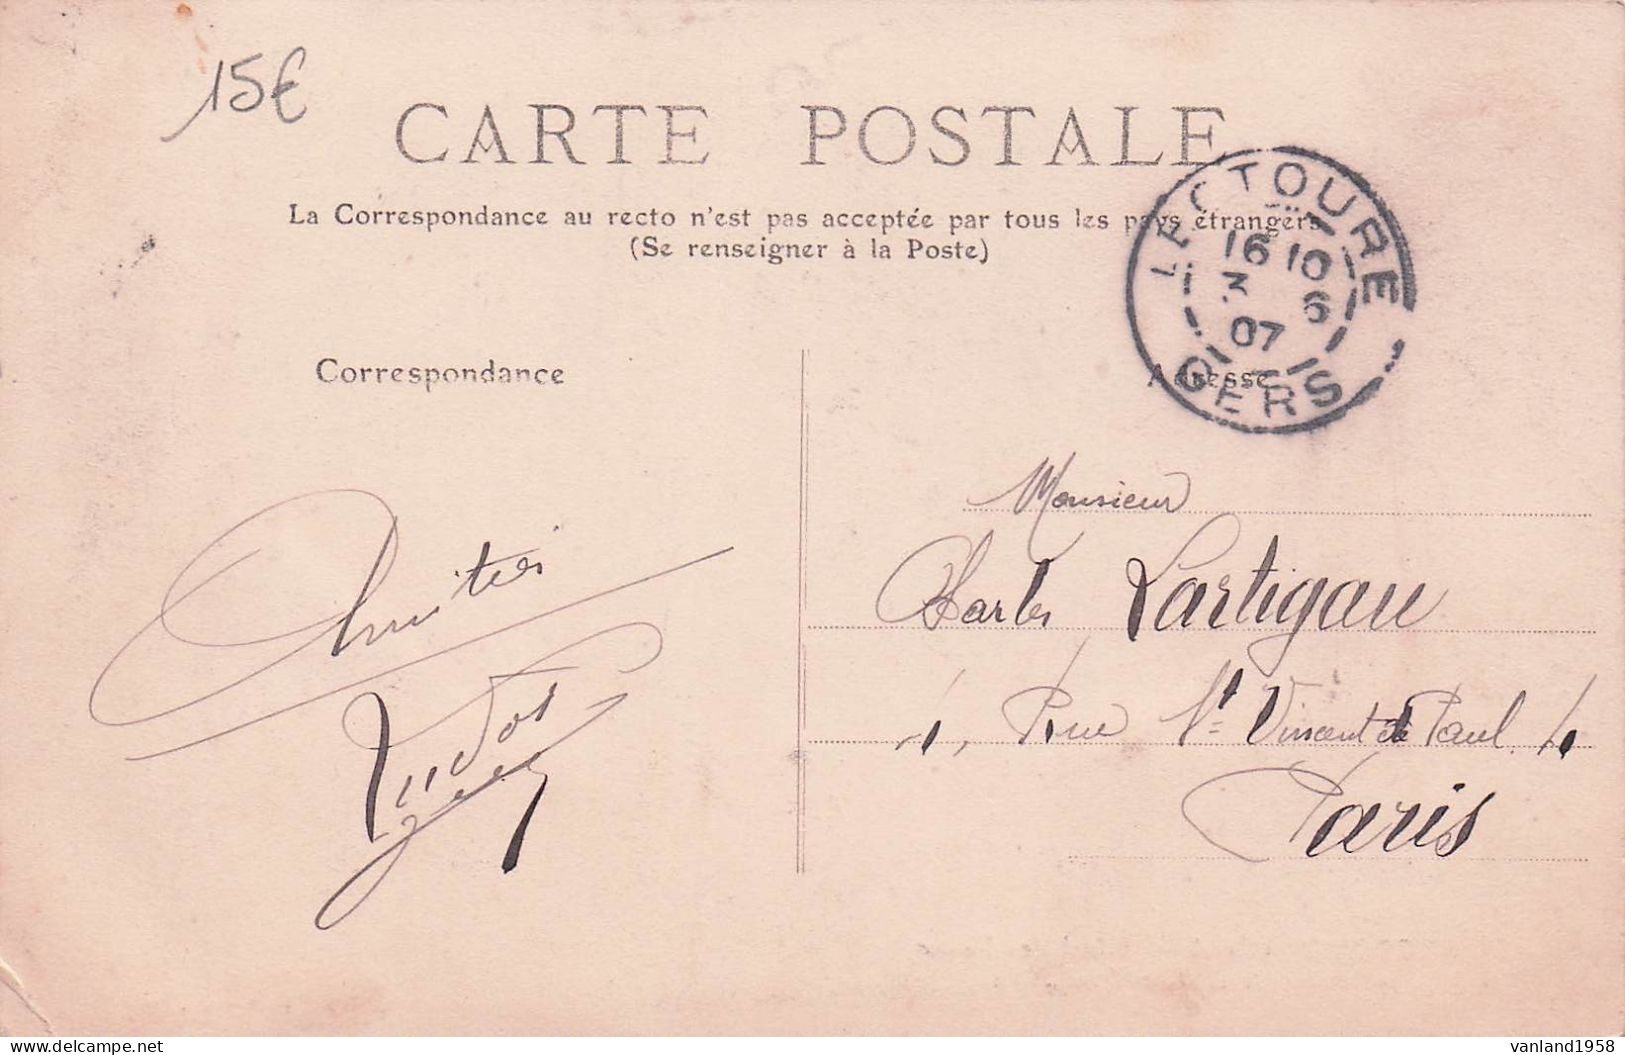 15€
CARTE POSTALE
La Correspondance au recto n'est pas acceptée par tous les pays étrangers
(Se renseigner à la Poste)
LECTOURE
16 10
3 6
07
GERS
Correspondance
Adresse
Amitiés
Monsieur
Charles Lartigau
1, Rue St Vincent de Paul
Paris
vanland1958